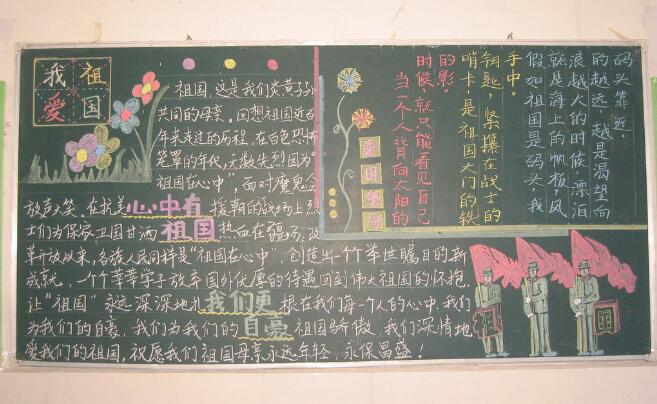 我爱
祖国
祖国，这是我们炎黄子孙
共同的母亲。回想祖国近百
年来走过的历程，在白色恐怖
笼罩的年代，无数先烈因为“
祖国在心中”，面对魔鬼会
放声大笑。在抗美心中有援朝的战场上烈
士们为保家卫国甘洒祖国热血在疆场，改
革开放以来，各族人民同样是“祖国在心中”，创造出一个个举世瞩目的新
成就，一个个莘莘学子放弃国外优厚的待遇回到伟大祖国的怀抱，
让“祖国”永远深深地扎我们更根在我们每一个人的心中，我们
为我们的自豪，我们为我们的自豪祖国骄傲，我们深情地
爱我们的祖国，祝愿我们祖国母亲永远年轻，永保昌盛！
爱国警句
当一个人背向太阳的
时候，就只能看见自己
的影。
哨卡，是祖国大门的铁
钥匙，紧攥在战士的
手中。
假如祖国是码头，我
就是海上的帆板，风
浪越大的时候，漂泊
的越远，越是渴望向
码头靠近。